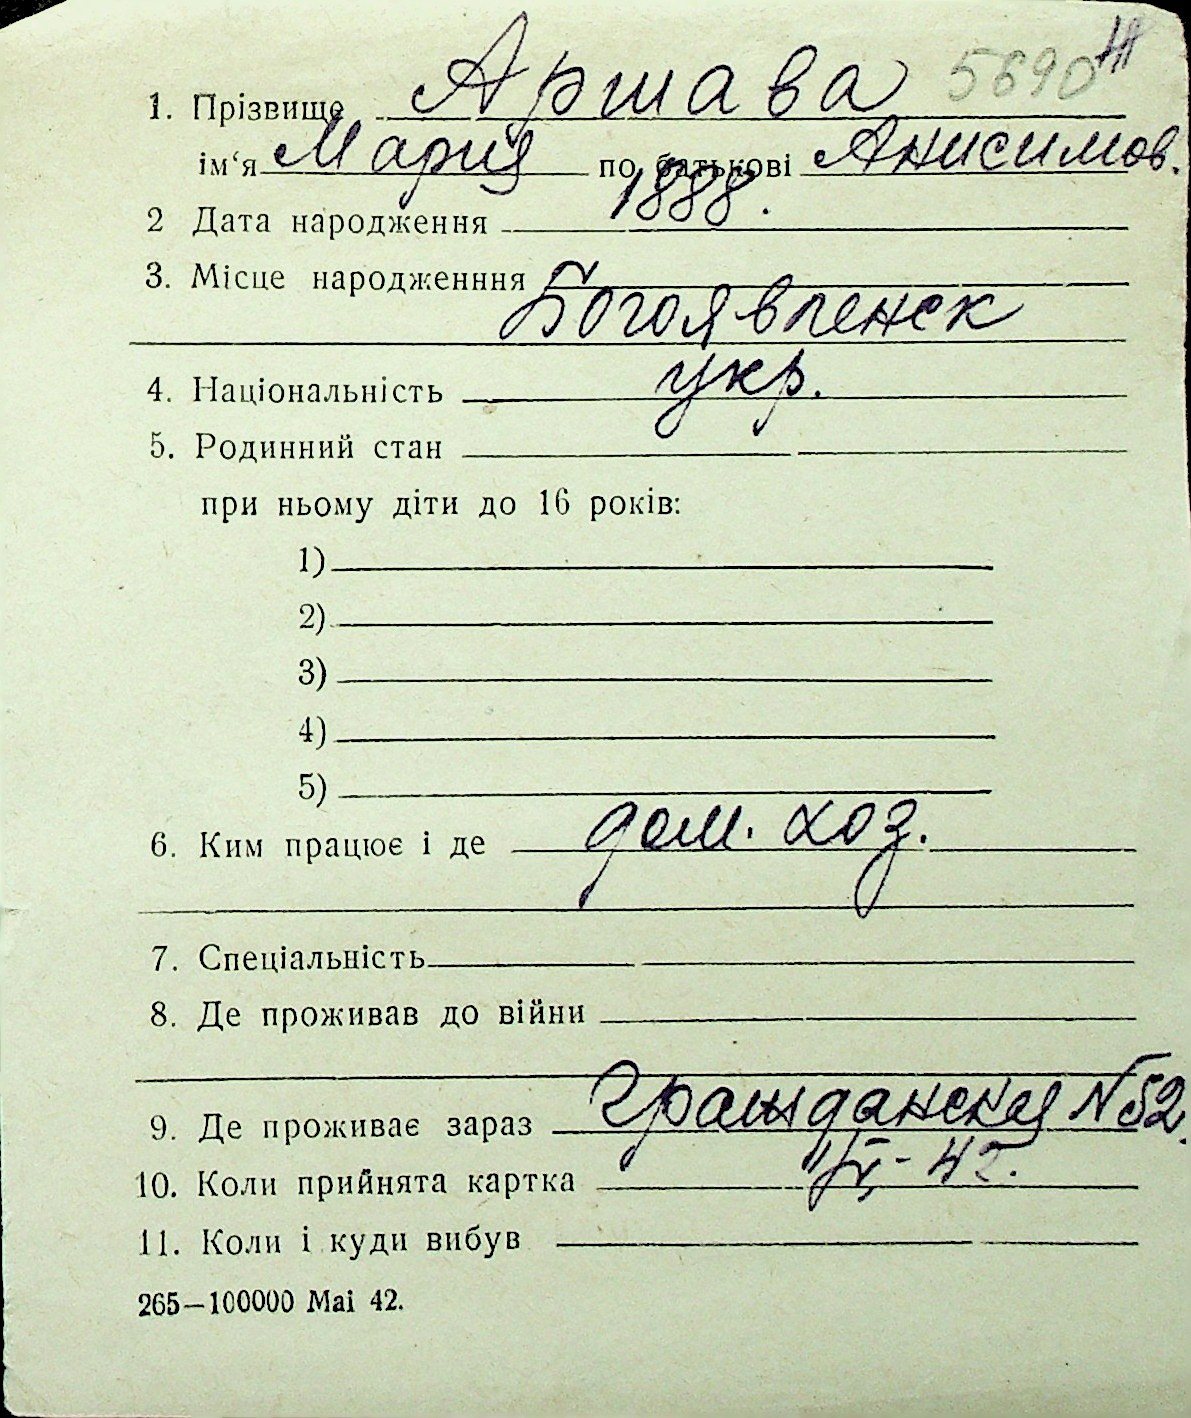 5690
1. Прізвище Аршава
ім‘я Мария по батькові Анисимов.
2 Дата народження 1888.
3. Місце народженння
Богоявленск
4. Національність укр.
5. Родинний стан
при ньому діти до 16 років:
1)
2)
3)
4)
5)
6. Ким працює і де дом. хоз.
7. Спеціальність
8. Де проживав до війни
9. Де проживає зараз Гражданская N 52.
10. Коли прийнята картка 42.
11. Коли і куди вибув
265—100000 Маі 42.